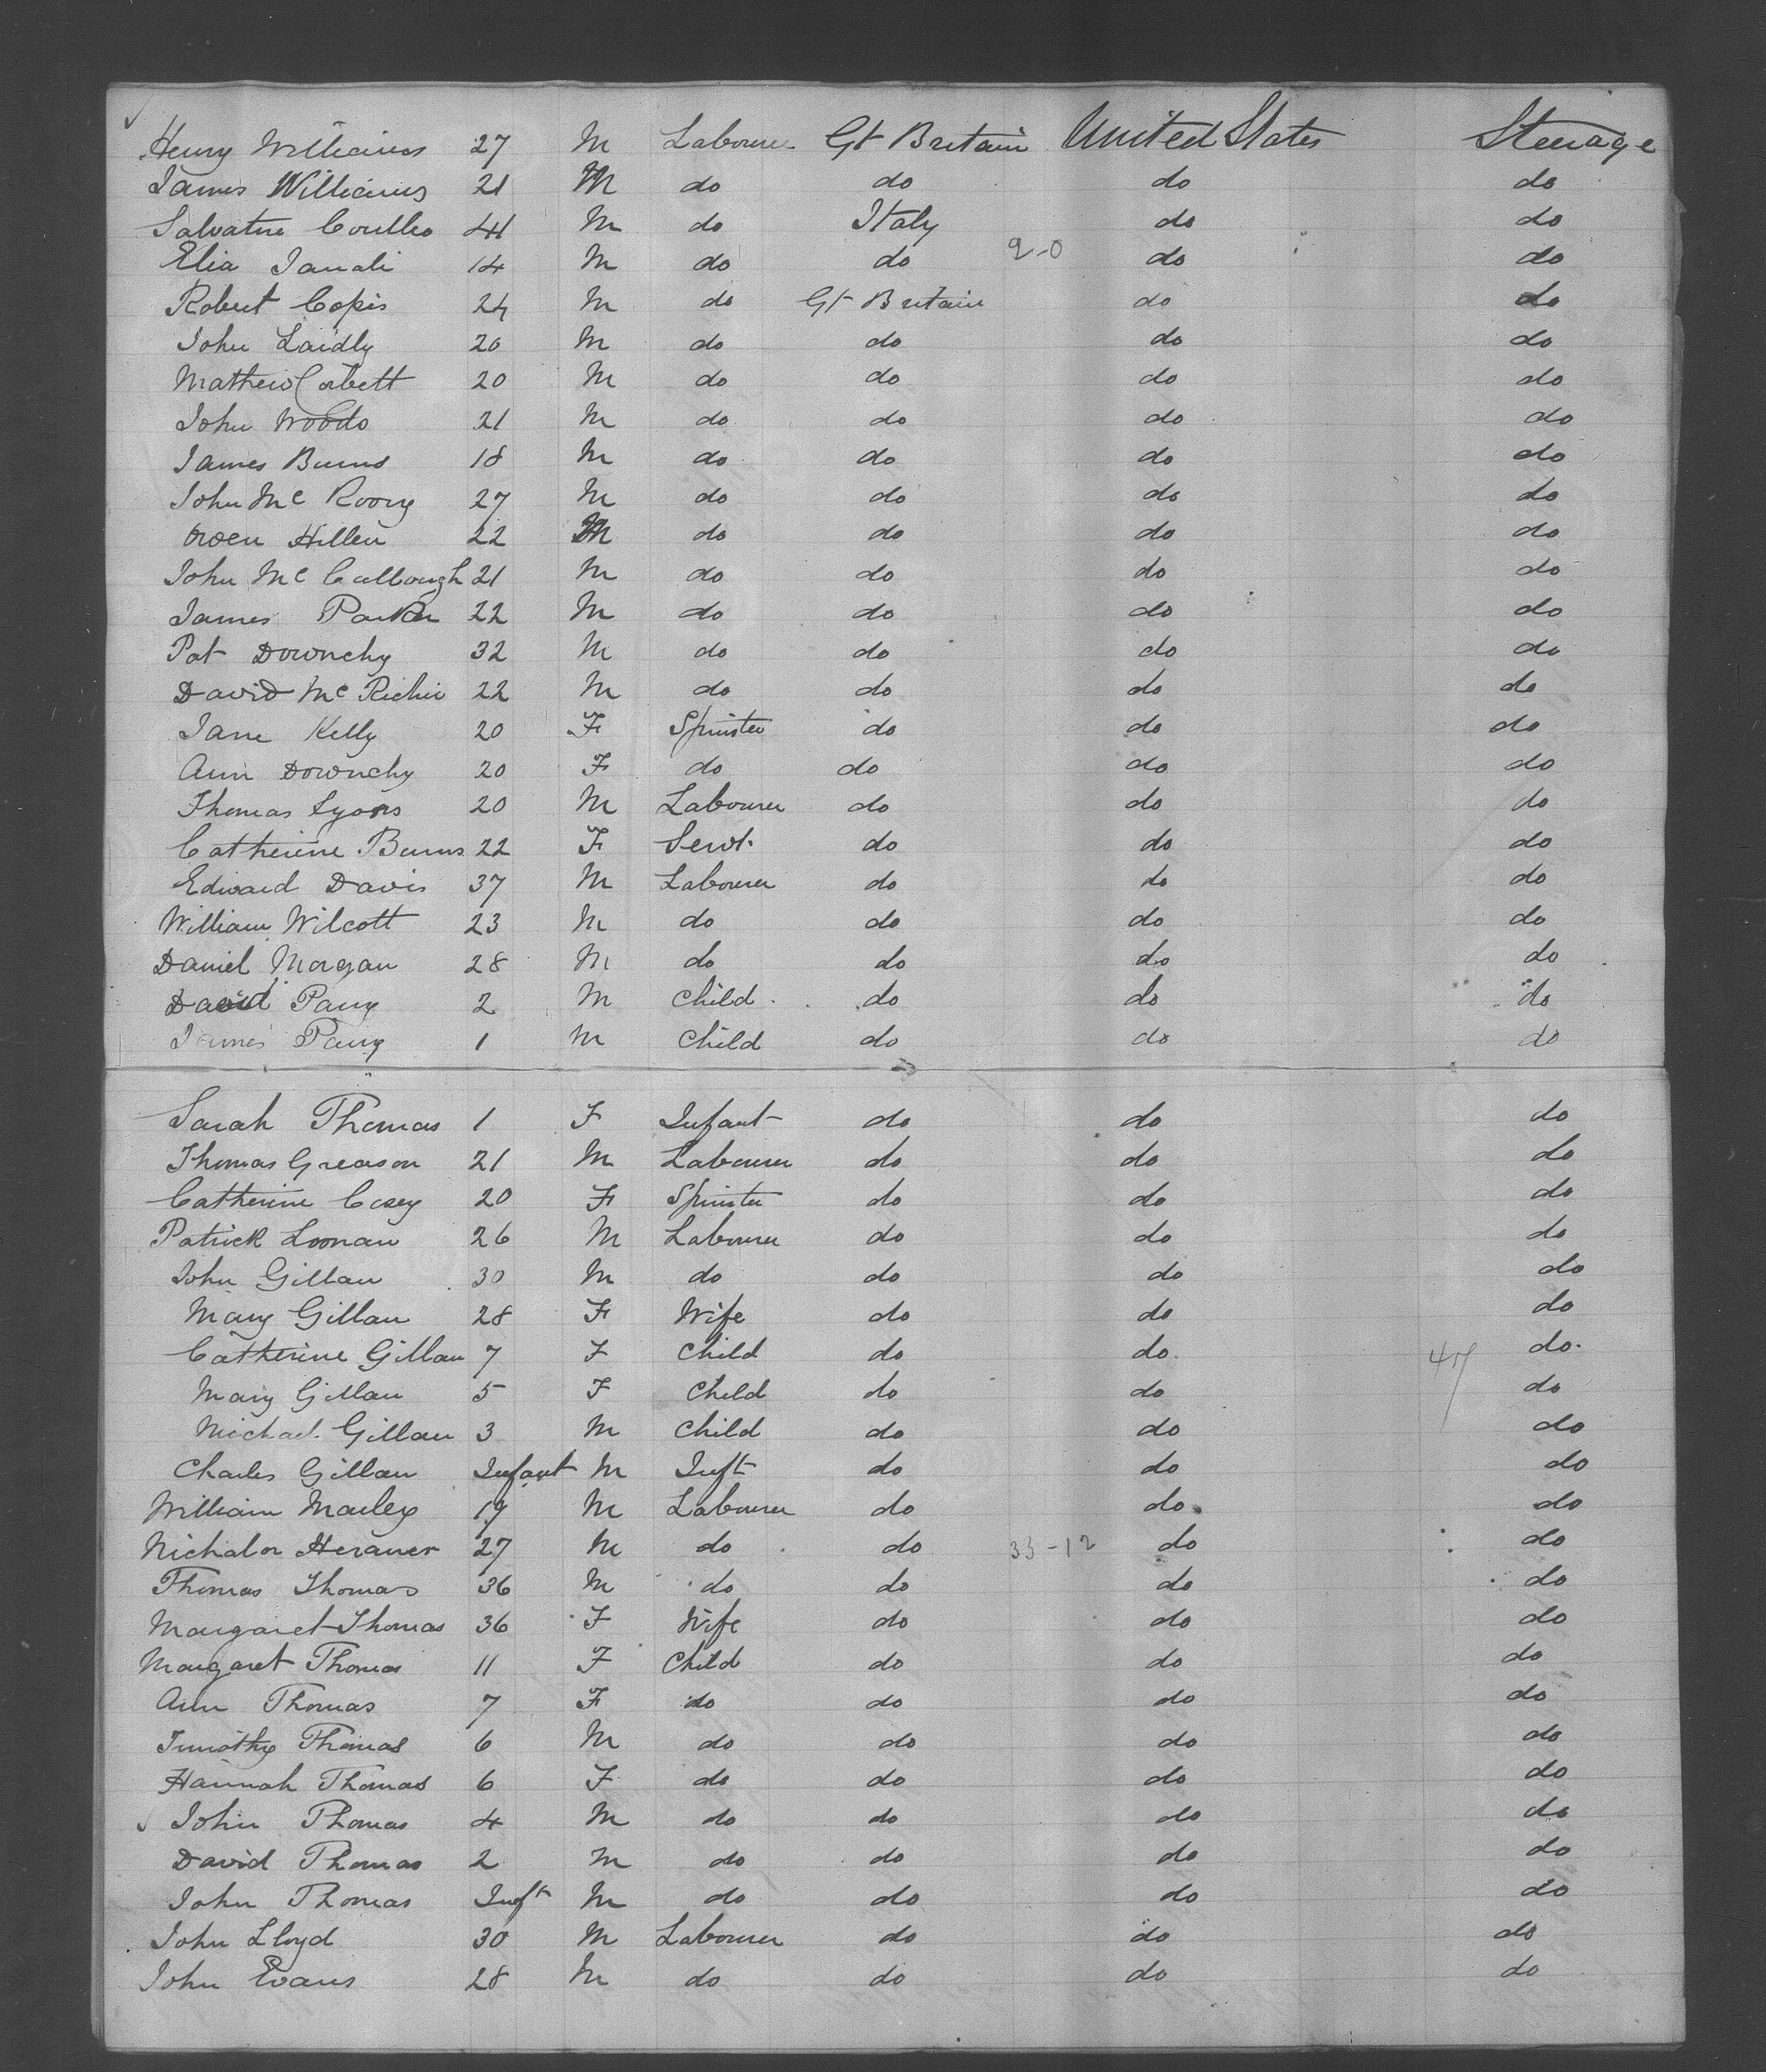 Henry Williams 27 M Labourer Gt Britain United States Steerage
James Williams 21 M do do do do
Salvatore 44 M do Italy do do
Elia 14 M do do 9-0 do do
Robert Copis 24 M do Gt Britain do do
John Laidly 20 M do do do do
Mathew Corbett 20 M do do do do
John Woods 21 M do do do do
James Burns 18 M do do do do
John Mc Roory 27 M do do do do
Owen Hillen 22 M do do do do
John Mc Cullough 21 M do do do do
James Parker 22 M do do do do
Pat Downchy 32 M do do do do
David Mc Richie 22 M do do do do
Jane Kelly 20 F Spinster do do do
Ann Downchy 20 F do do do do
Thomas Lyons 20 M Labourer do do do
Catherine Burns 22 F Servt. do do do
Edward Davis 37 M Labourer do do do
William Wilcott 23 M do do do do
Daniel Morgan 28 M do do do do
David Parry 2 M Child do do do
James Parry 1 M Child do do do
Sarah Thomas 1 F Infant do do do
Thomas Greason 21 M Labourer do do do
Catherine Casey 20 F Spinster do do do
Patrick Loonan 26 M Labourer do do do
John Gillan 30 M do do do do
Mary Gillan 28 F Wife do do do
Catherine Gillan 7 F Child do do. do.
Mary Gillan 5 F Child do do do
Michael Gillan 3 M Child do do do
Charles Gillan Infant M Inft do do do
William Marley 19 M Labourer do do do
Nicholas 27 M do do 33-12 do do
Thomas Thomas 36 M do do do do
Margaret Thomas 36 F Wife do do do
Margaret Thomas 11 F Child do do do
Ann Thomas 7 F do do do do
Timothy Thomas 6 M do do do do
Hannah Thomas 6 F do do do do
John Thomas 4 M do do do do
David Thomas 2 M do do do do
John Thomas Inft M do do do do
John Lloyd 30 M Labourer do do do
John Evans 28 M do do do do